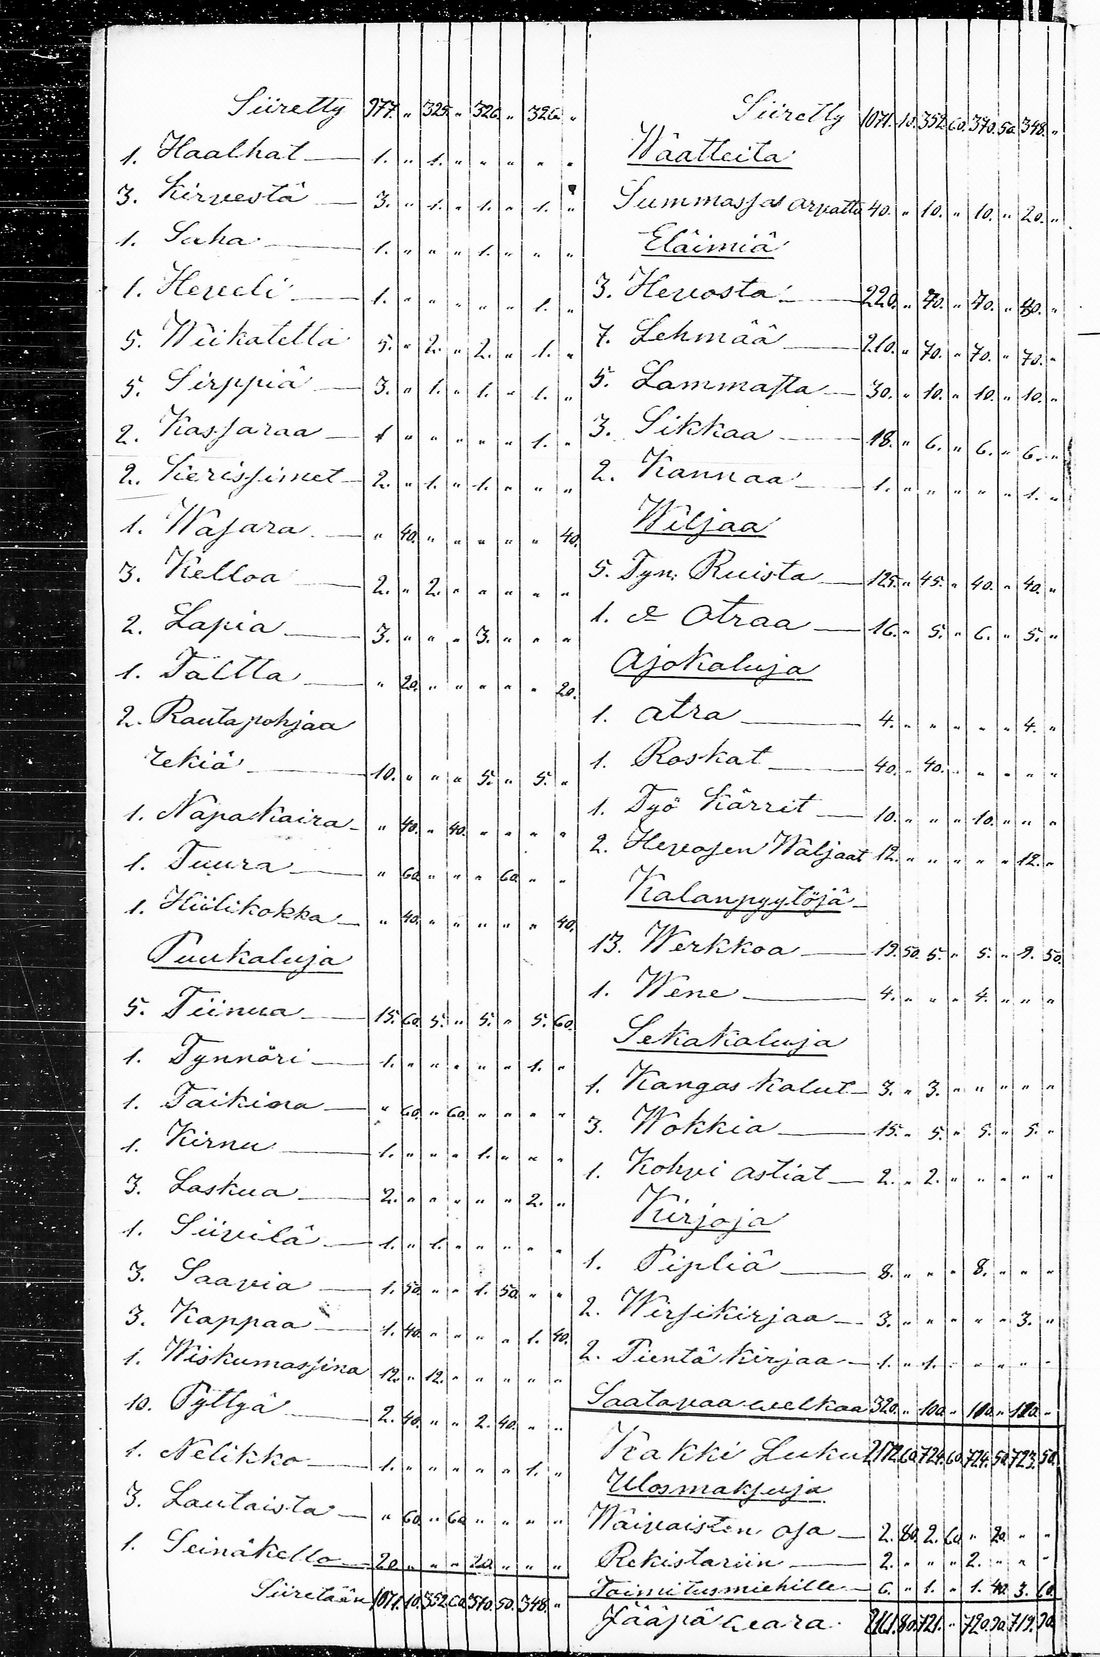 Siiretty 977. „ 325. „ 326. „ 326. „
1. Haalhat 1. „ 1. „ „ „ „ „
3. Kirvestä 3. „ 1. „ 1. „ 1. „
1. Saha 1. „ „ „ 1. „ „ „
1. Höveli 1. „ „ „ „ „ 1. „
5. Wiikatetta 5. „ 2. „ 2. „ 1. „
5. Sirppiä 3. „ 1. „ 1. „ 1. „
2. Kassaraa 1 „ „ „ „ „ 1. „
2. Kerissimet 2. „ 1. „ 1. „ „ „
1. Wasara „ 40. „ „ „ „ „ 40.
3. Kelloa 2. „ 2. „ „ „ „ „
2. Lapia 3. „ „ „ 3. „ „ „
1. Tältta „ 20. „ „ „ „ „ 20.
2. Rautapohjaa
rekiä 10. „ „ „ 5. „ 5. „
1. Napakaira „ 40. „ 40. „ „ „ „
1. Tuura „ 60. „ „ „ 60. „ „
1. Hiilikokka „ 40. „ „ „ „ „ 40.
Puukaluja
5. Tiinua 15. 60. 5. „ 5. „ 5. 60.
1. Tynnöri 1. „ „ „ „ „ 1. „
1. Taikina „ 60. „ 60. „ „ „ „
1. Kirnu 1. „ „ „ 1. „ „ „
3. Laskua 2. „ „ „ „ „ 2. „
1. Siivilä 1. „ 1. „ „ „ „ „
3. Saavia 1. 50. „ „ 1. 50. „ „
3. Kappaa 1. 40. „ „ „ „ 1. 40.
1. Wiskumassina 12. „ 12. „ „ „ „ „
10. Pyttyä 2. 40. „ „ 2. 40. „ „
1. Nelikko 1. „ „ „ „ „ 1. „
3. Lautaista „ 60. „ 60. „ „ „ „
1. Seinäkello 20. „ „ „ 20. „ „ „
Siiretään 1071. 10. 352. 60. 370. 50. 348. „
Siiretty 1071. 10. 352. 60. 370. 50. 348. „
Wäatteita
Summassas arvattu 40. „ 10. „ 10. „ 20. „
Eläimiä
3. Hevosta 220. „ 70. „ 70. „ 80. „
7. Lehmää 210. „ 70. „ 70. „ 70. „
5. Lammasta 30. „ 10. „ 10. „ 10. „
3. Sikkaa 18. „ 6. „ 6. „ 6. „
2. Kannaa 1. „ „ „ „ „ 1. „
Wiljaa
5. Tyn: Ruista 125. „ 45. „ 40. „ 40. „
1. d:o Otraa 16. „ 5. „ 6. „ 5. „
Ajokaluja
1. atra 4. „ „ „ „ „ 4. „
1. Roskat 40. „ 40. „ „ „ „ „
1. Työ Kärrit 10. „ „ „ 10. „ „ „
2. Hevosen Waljaat 12. „ „ „ „ „ 12. „
Kalanpyytöjä
13. Werkkoa 19. 50. 5. „ 5. „ 9. 50.
1. Wene 4. „ „ „ 4. „ „ „
Sekakaluja
1. Kangas kalut 3. „ 3. „ „ „ „ „
3. Wokkia 15. „ 5. „ 5. „ 5. „
1. Kohvi astiat 2. „ 2. „ „ „ „ „
Kirjoja
1. Pipliä 8. „ „ „ 8. „ „ „
2. Wirsikirjaa 3. „ „ „ „ „ 3. „
2. Pientä kirjaa 1. „ 1. „ „ „ „ „
Saatavaa welkaa 320. „ 100. „ 110. „ 110. „
Kakki Luku 2172. 60. 724. 60. 724. 50. 723. 50.
Ulosmaksuja
Wäivaisten osa 2. 80. 2. 60. „ 20. „ „
Rekistariin 2. „ „ „ 2. „ „ „
Toimitusmiehille 6. „ 1. „ 1. 40. 3. 60.
Jääpä weara 2161. 80. 721. „ 720. 90. 719. 90.